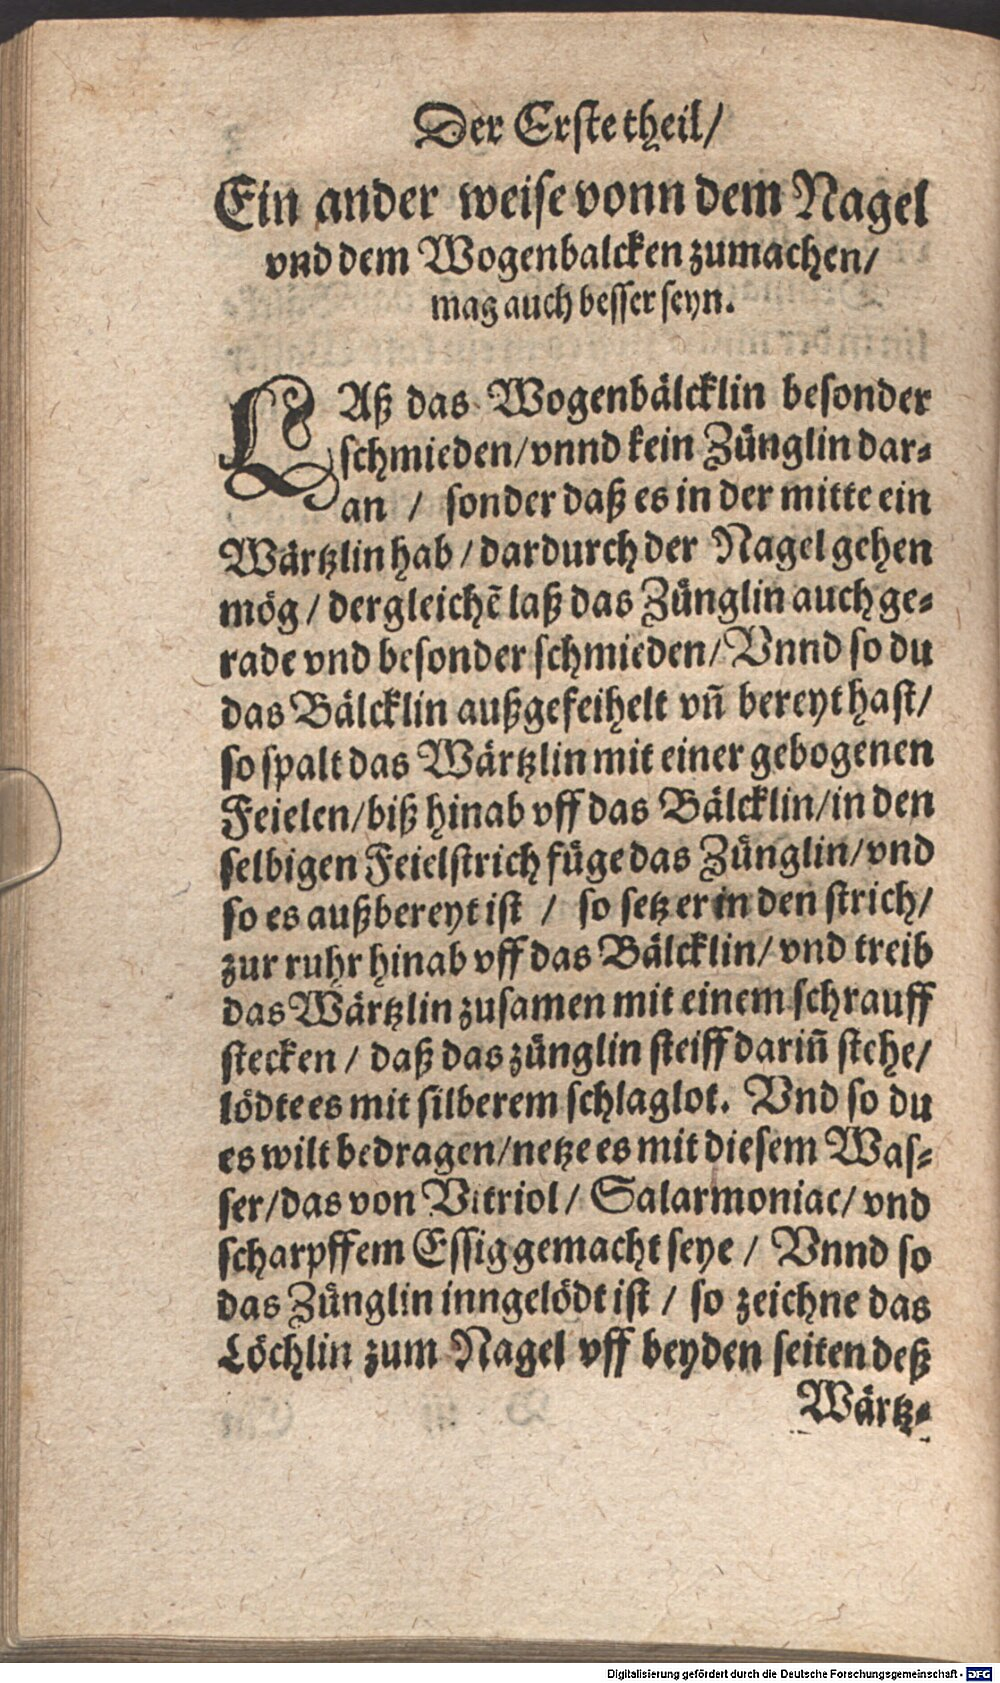 Der Erste theil/
Ein ander weise vonn dem Nagel
vnd dem Wogenbalcken zumachen/
mag auch besser seyn.
LAß das Wogenbälcklin besonder
schmieden/ vnnd kein Zünglin dar-
an / sonder daß es in der mitte ein
Wärtzlin hab / dardurch der Nagel gehen
mög / dergleichẽ laß das Zünglin auch ge-
rade vnd besonder schmieden/ Vnnd so du
das Bälcklin außgefeihelt vñ bereyt hast/
so spalt das Wärtzlin mit einer gebogenen
Feielen/ biß hinab vff das Bälcklin/ in den
selbigen Feielstrich füge das Zünglin/ vnd
so es außbereyt ist / so setz er in den strich/
zur ruhr hinab vff das Bälcklin/ vnd treib
das Wärtzlin zusamen mit einem schrauff
stecken / daß das zünglin steiff dariñ stehe/
lödte es mit silberem schlaglot. Vnd so du
es wilt bedragen/ netze es mit diesem Was-
ser/ das von Vitriol / Salarmoniac/ vnd
scharpffem Essig gemacht seye / Vnnd so
das Zünglin inngelödt ist / so zeichne das
Löchlin zum Nagel vff beyden seiten deß
Wärtz-
Digitalisierung gefördert durch die Deutsche Forschungsgemeinschaft - DFG